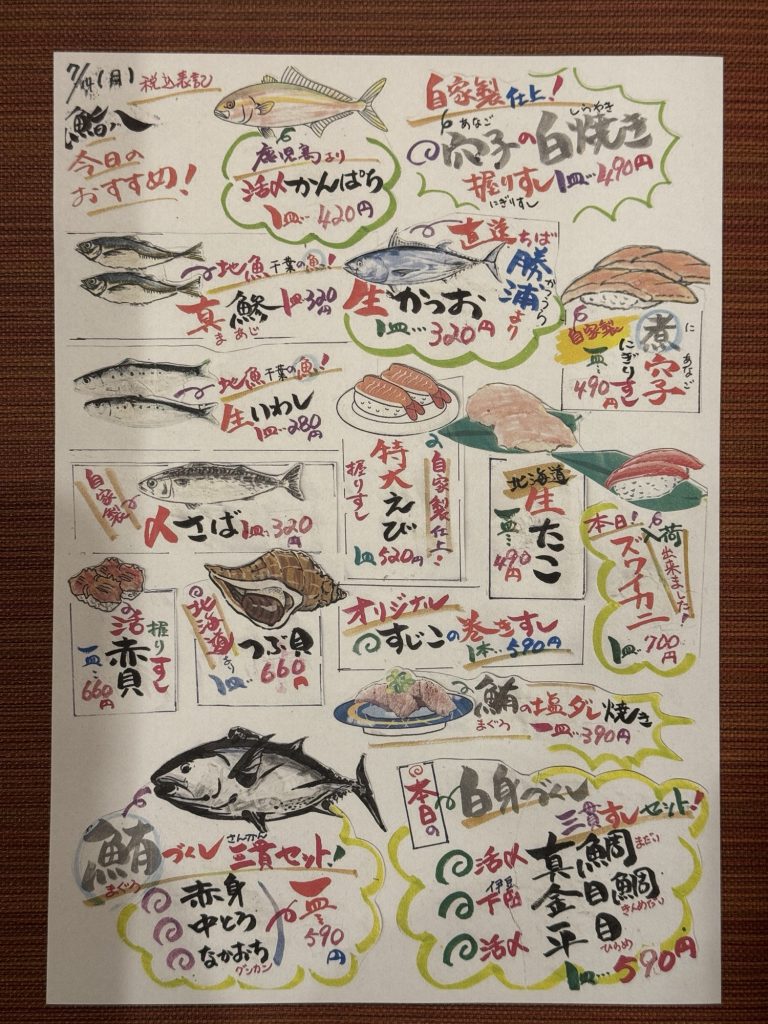 7/14(月)
税込表記
鮨八
今日の
おすすめ!
鹿児島より
活〆かんぱち
1皿…420円
自家製仕上!
あなご しらやき
穴子の白焼き
握りすし1皿…490円
にぎりすし
地魚千葉の魚!
真鯵1皿320円
まあじ
直送ちば
勝浦より
かつうら
生かつお
1皿…320円
自家製
煮穴子
に あなご
にぎりすし
一皿…490円
地魚千葉の魚!
生いわし
1皿…280円
自家製
〆さば1皿…320円
自家製仕上!
特大えび
握りすし
1皿520円
北海道
生たこ
一皿…490円
本日!入荷出来ました!
ズワイカニ
1皿…700円
握りすし
活赤貝
一皿…660円
北海道より
つぶ貝
1皿…660円
オリジナル
すじこの巻きすし
1本…590円
鮪の塩ダレ焼き
まぐろ
一皿…390円
鮪づくし三貫セット!
まぐろ さんかん
赤身
中とろ
なかおち
グンカン
一皿…590円
本日の
白身づくし
三貫すしセット!
活〆真鯛
まだい
伊豆
下田金目鯛
きんめだい
活〆平目
ひらめ
1皿…590円